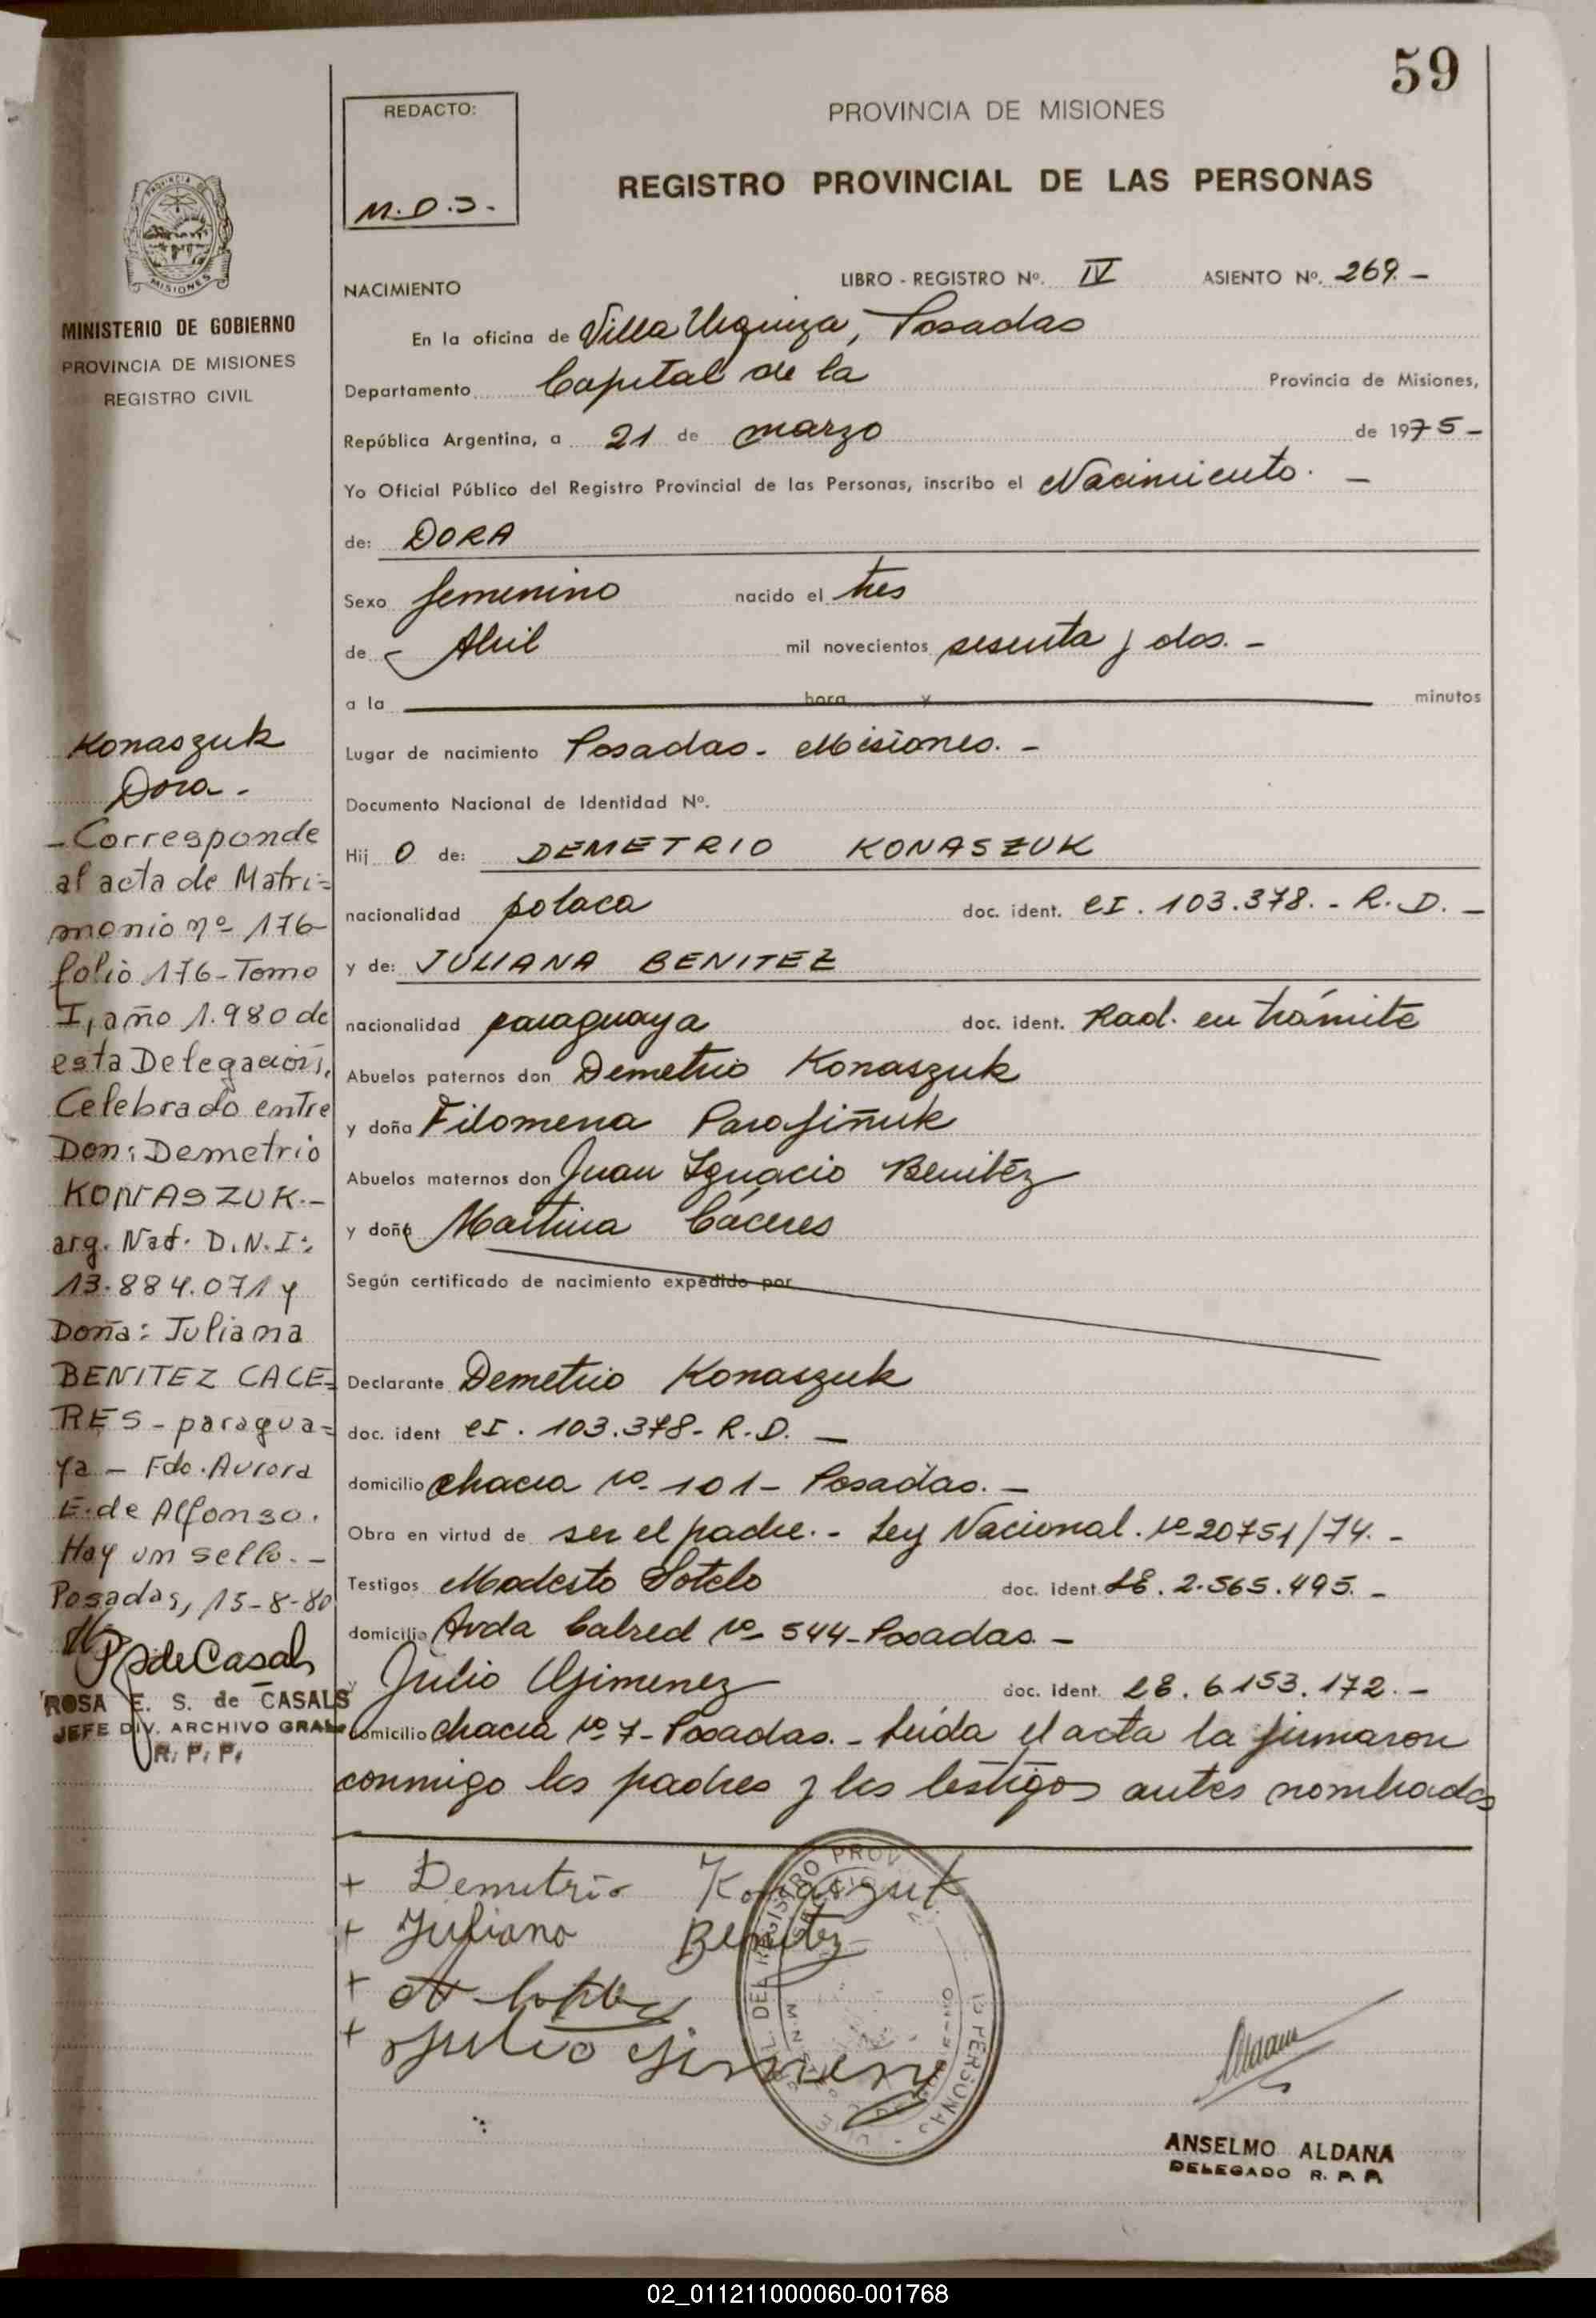 59
REDACTO:
M.D.J.-
PROVINCIA DE MISIONES
REGISTRO PROVINCIAL DE LAS PERSONAS
PROVINCIA DE
MISIONES
MINISTERIO DE GOBIERNO
PROVINCIA DE MISIONES
REGISTRO CIVIL
NACIMIENTO
LIBRO - REGISTRO Nº. IV ASIENTO Nº. 269.-
En la oficina de Villa Urquiza, Posadas
Departamento Capital de la Provincia de Misiones,
República Argentina, a 21 de marzo de 1975-
Yo Oficial Público del Registro Provincial de las Personas, inscribo el Nacimiento. -
de: DORA
Sexo femenino nacido el tres
de Abril mil novecientos sesenta y dos.-
a la hora y minutos
Lugar de nacimiento Posadas- Misiones.-
Documento Nacional de Identidad Nº.
Hij o de: DEMETRIO KONASZUK
nacionalidad polaca doc. ident. CI. 103.378.- R.D.-
y de: JULIANA BENITEZ
nacionalidad paraguaya doc. ident. Rad. en trámite
Abuelos paternos don Demetrio Konaszuk
y doña Filomena Parafiñuk
Abuelos maternos don Juan Ignacio Benitéz
y doña Martina Cáceres
Según certificado de nacimiento expedido por
Declarante Demetrio Konaszuk
doc. ident CI. 103.378- R.D. -
domicilio chacra Nº 101- Posadas.-
Obra en virtud de ser el padre.- Ley Nacional. Nº 20751/74.-
Testigos Modesto Sotelo doc. ident LE. 2.565.495.-
domicilio Avda Cabred Nº 544-Posadas-
y Julio Gimenez doc. ident. LE. 6.153.172.-
domicilio chacra Nº 7-Posadas.- Leída el acta la firmaron
conmigo los padres y los testigos antes nombrados
+ Demetrio Konaszuk
+ Juliana Benitez
+
+ Julio Gimenez
ANSELMO ALDANA
DELEGADO R. P. P.
Konaszuk
Dora-
-Corresponde
al acta de Matri=
monio nº 176-
folio 176-Tomo
I, año 1.980 de
esta Delegación,
Celebrado entre
Don: Demetrio
KONASZUK.-
arg. Nat. D.N.I:
13.884.071 y
Doña: Juliana
BENITEZ CACE=
RES-paragua=
ya - Fdo. Aurora
E. de Alfonso.
Hay un sello.-
Posadas, 15-8-80
R S de Casals
ROSA E. S. de CASALS
JEFE DIV. ARCHIVO GRAL.
R. P. P.
02_011211000060-001768